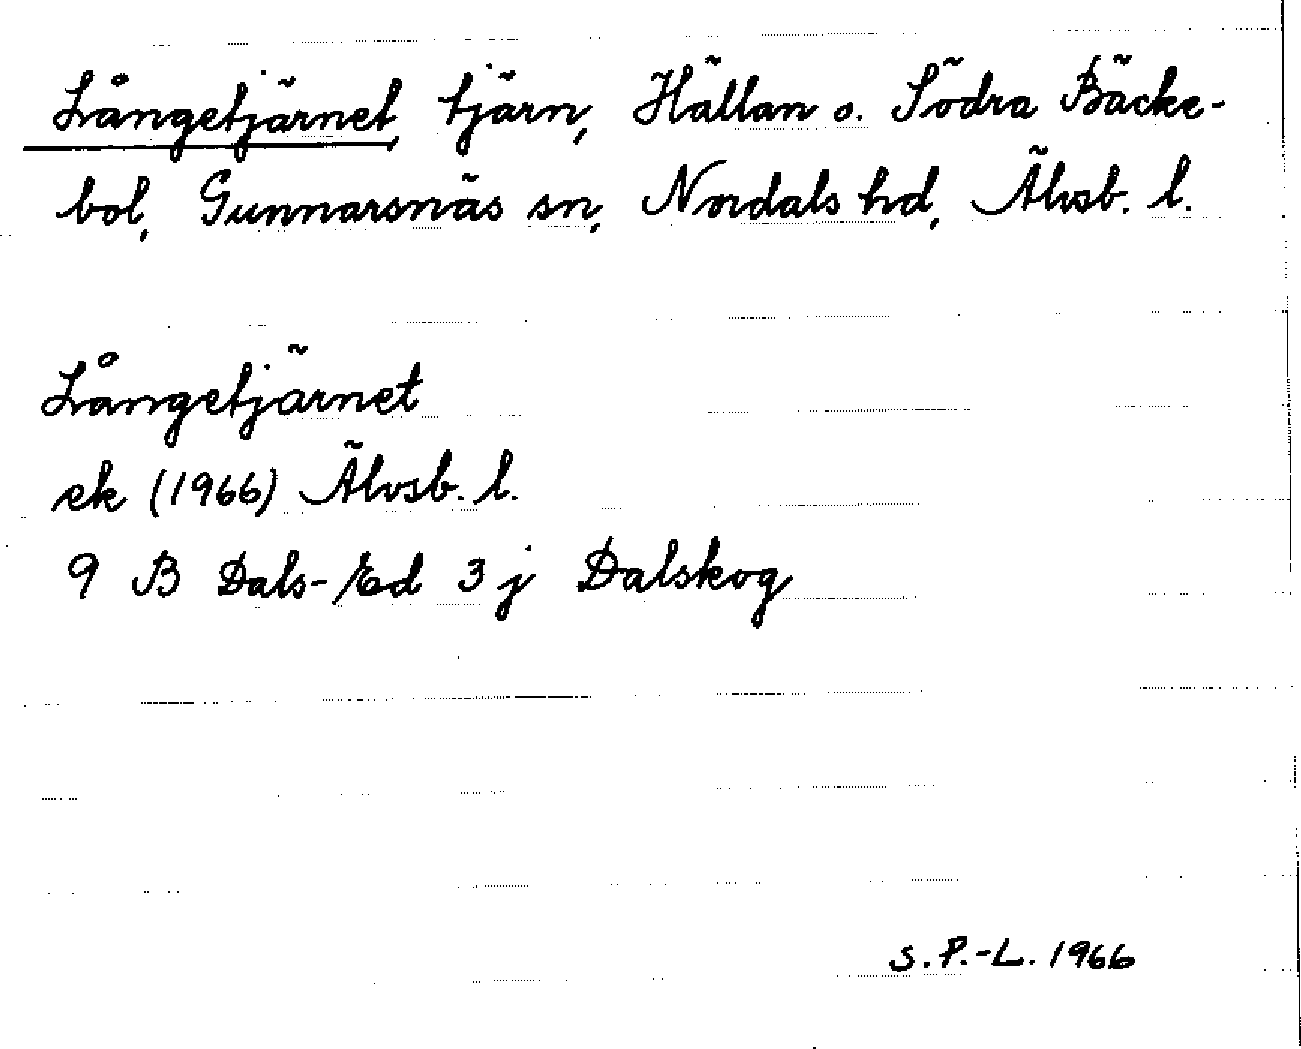 Långetjärnet, tjärn, Hällan o. Södra Bäcke-
bol, Gunnarsnäs sn, Nordals hd, Älvsb. l.
Långetjärnet
ek (1966) Älvsb. l.
9 B Dals-Ed 3 j Dalskog
S.P.-L. 1966